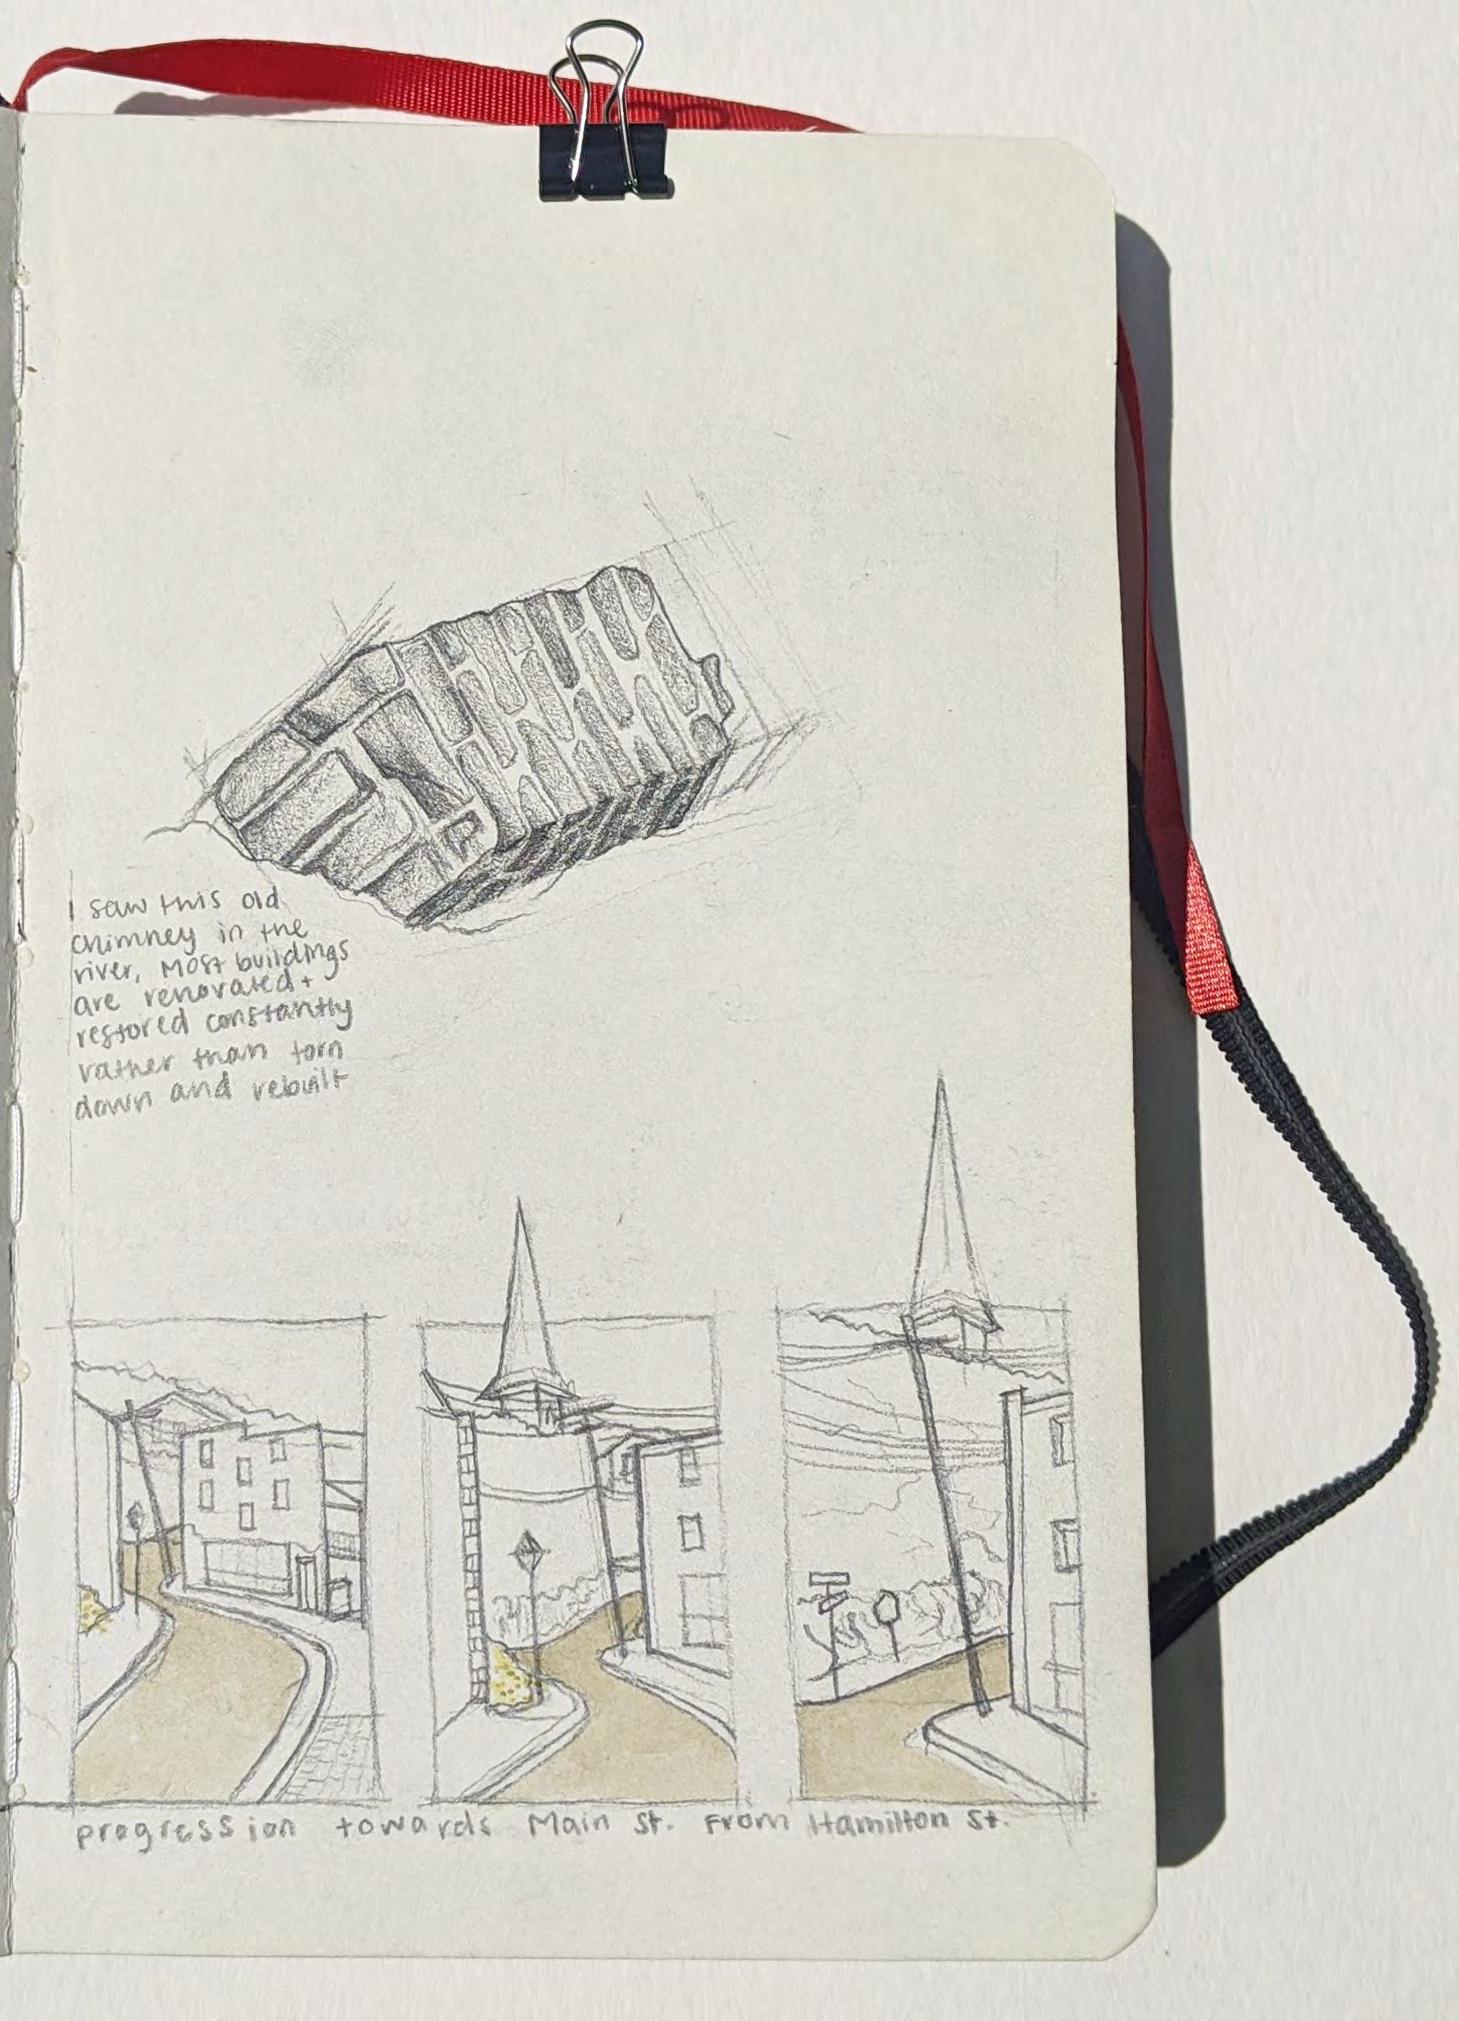 I saw this old
chimney in the
river, Most buildings
are renovated +
restored constantly
rather than torn
down and rebuilt
progression towards Main St. From Hamilton St.